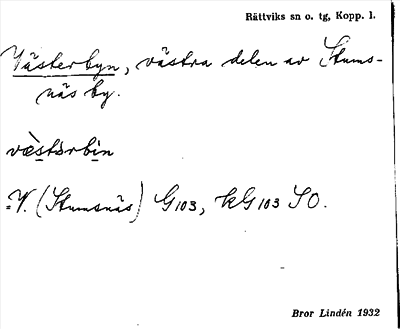 Rättviks sn o. tg, Kopp. l.
Västerbyn, västra delen av Stums-
näs by.
vèstərbin
V. (Stumsnäs) G103, kG103 SO.
Bror Lindén 1932